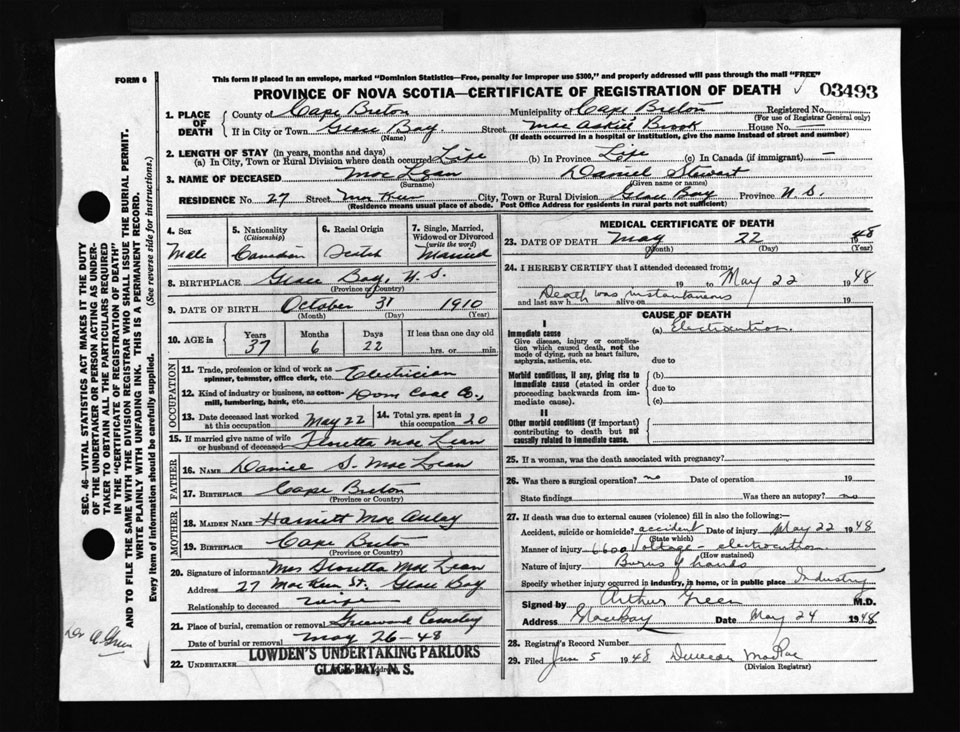 FORM 6
This form if placed in an envelope, marked "Dominion Statistics—Free, penalty for improper use $300," and properly addressed will pass through the mail "FREE"
PROVINCE OF NOVA SCOTIA—CERTIFICATE OF REGISTRATION OF DEATH 03493
1. PLACE OF DEATH
County of Cape Breton Municipality of Cape Breton Registered No.
(For use of Registrar General only)
If in City or Town Glace Bay Street House No. —
(Name) (If death occurred in a hospital or institution, give the name instead of street and number)
2. LENGTH OF STAY (in years, months and days)
(a) In City, Town or Rural Division where death occurred Life (b) In Province Life (c) In Canada (if immigrant) —
3. NAME OF DECEASED Mac Lean Daniel Stewart
(Surname) (Given name or names)
RESIDENCE No. 27 Street City, Town or Rural Division Glace Bay Province N. S.
(Residence means usual place of abode. Post Office Address for residents in rural parts not sufficient)
4. Sex Male
5. Nationality (Citizenship) Canadian
6. Racial Origin Scotch
7. Single, Married, Widowed or Divorced (write the word) Married
8. BIRTHPLACE Glace Bay, N. S.
(Province or Country)
9. DATE OF BIRTH October 31 1910
(Month) (Day) (Year)
10. AGE in Years 37 Months 6 Days 22 If less than one day old
hrs. or min.
OCCUPATION
11. Trade, profession or kind of work as spinner, teamster, office clerk, etc. Electrician
12. Kind of industry or business, as cotton-mill, lumbering, bank, etc. Dom Coal Co.,
13. Date deceased last worked at this occupation May 22
14. Total yrs. spent in this occupation 20
15. If married give name of wife or husband of deceased Floretta Mac Lean
FATHER
16. NAME Daniel S. Mac Lean
17. BIRTHPLACE Cape Breton
(Province or Country)
MOTHER
18. MAIDEN NAME Harriett Mac Aulay
19. BIRTHPLACE Cape Breton
(Province or Country)
20. Signature of informant Mrs Floretta Mac Lean
Address 27 Mac Keen St. Glace Bay
Relationship to deceased wife
21. Place of burial, cremation or removal Greenwood Cemetery
Date of burial or removal May 26-48
22. UNDERTAKER LOWDEN'S UNDERTAKING PARLORS
GLACE BAY, N. S.
MEDICAL CERTIFICATE OF DEATH
23. DATE OF DEATH May 22 1948
(Month) (Day) (Year)
24. I HEREBY CERTIFY that I attended deceased from:
19 to May 22 1948
and last saw h alive on 19
Death was instantaneous
CAUSE OF DEATH
I
Immediate cause (a) Electrocution.
Give disease, injury or complication which caused death, not the mode of dying, such as heart failure, asphyxia, asthenia, etc. due to
Morbid conditions, if any, giving rise to immediate cause (stated in order proceeding backwards from immediate cause). (b)
due to
(c)
II
Other morbid conditions (if important) contributing to death but not causally related to immediate cause.
25. If a woman, was the death associated with pregnancy?
26. Was there a surgical operation? no Date of operation 19
State findings Was there an autopsy? no
27. If death was due to external causes (violence) fill in also the following:
Accident, suicide or homicide? accident Date of injury May 22 1948
(State which)
Manner of injury 6600 voltage - electrocution
(How sustained)
Nature of injury Burns of hands
Specify whether injury occurred in industry, in home, or in public place Industry
Signed by Arthur Green M.D.
Address Glace Bay Date May 24 1948
28. Registrar's Record Number
29. Filed June 5 1948 Duncan MacRae
(Division Registrar)
SEC. 46—VITAL STATISTICS ACT MAKES IT THE DUTY
OF THE UNDERTAKER OR PERSON ACTING AS UNDER-
TAKER TO OBTAIN ALL THE PARTICULARS REQUIRED
IN THE "CERTIFICATE OF REGISTRATION OF DEATH"
AND TO FILE THE SAME WITH THE DIVISION REGISTRAR WHO SHALL ISSUE THE BURIAL PERMIT.
WRITE PLAINLY WITH UNFADING INK. THIS IS A PERMANENT RECORD.
Every item of information should be carefully supplied. (See reverse side for instructions.)
Dr A. Green